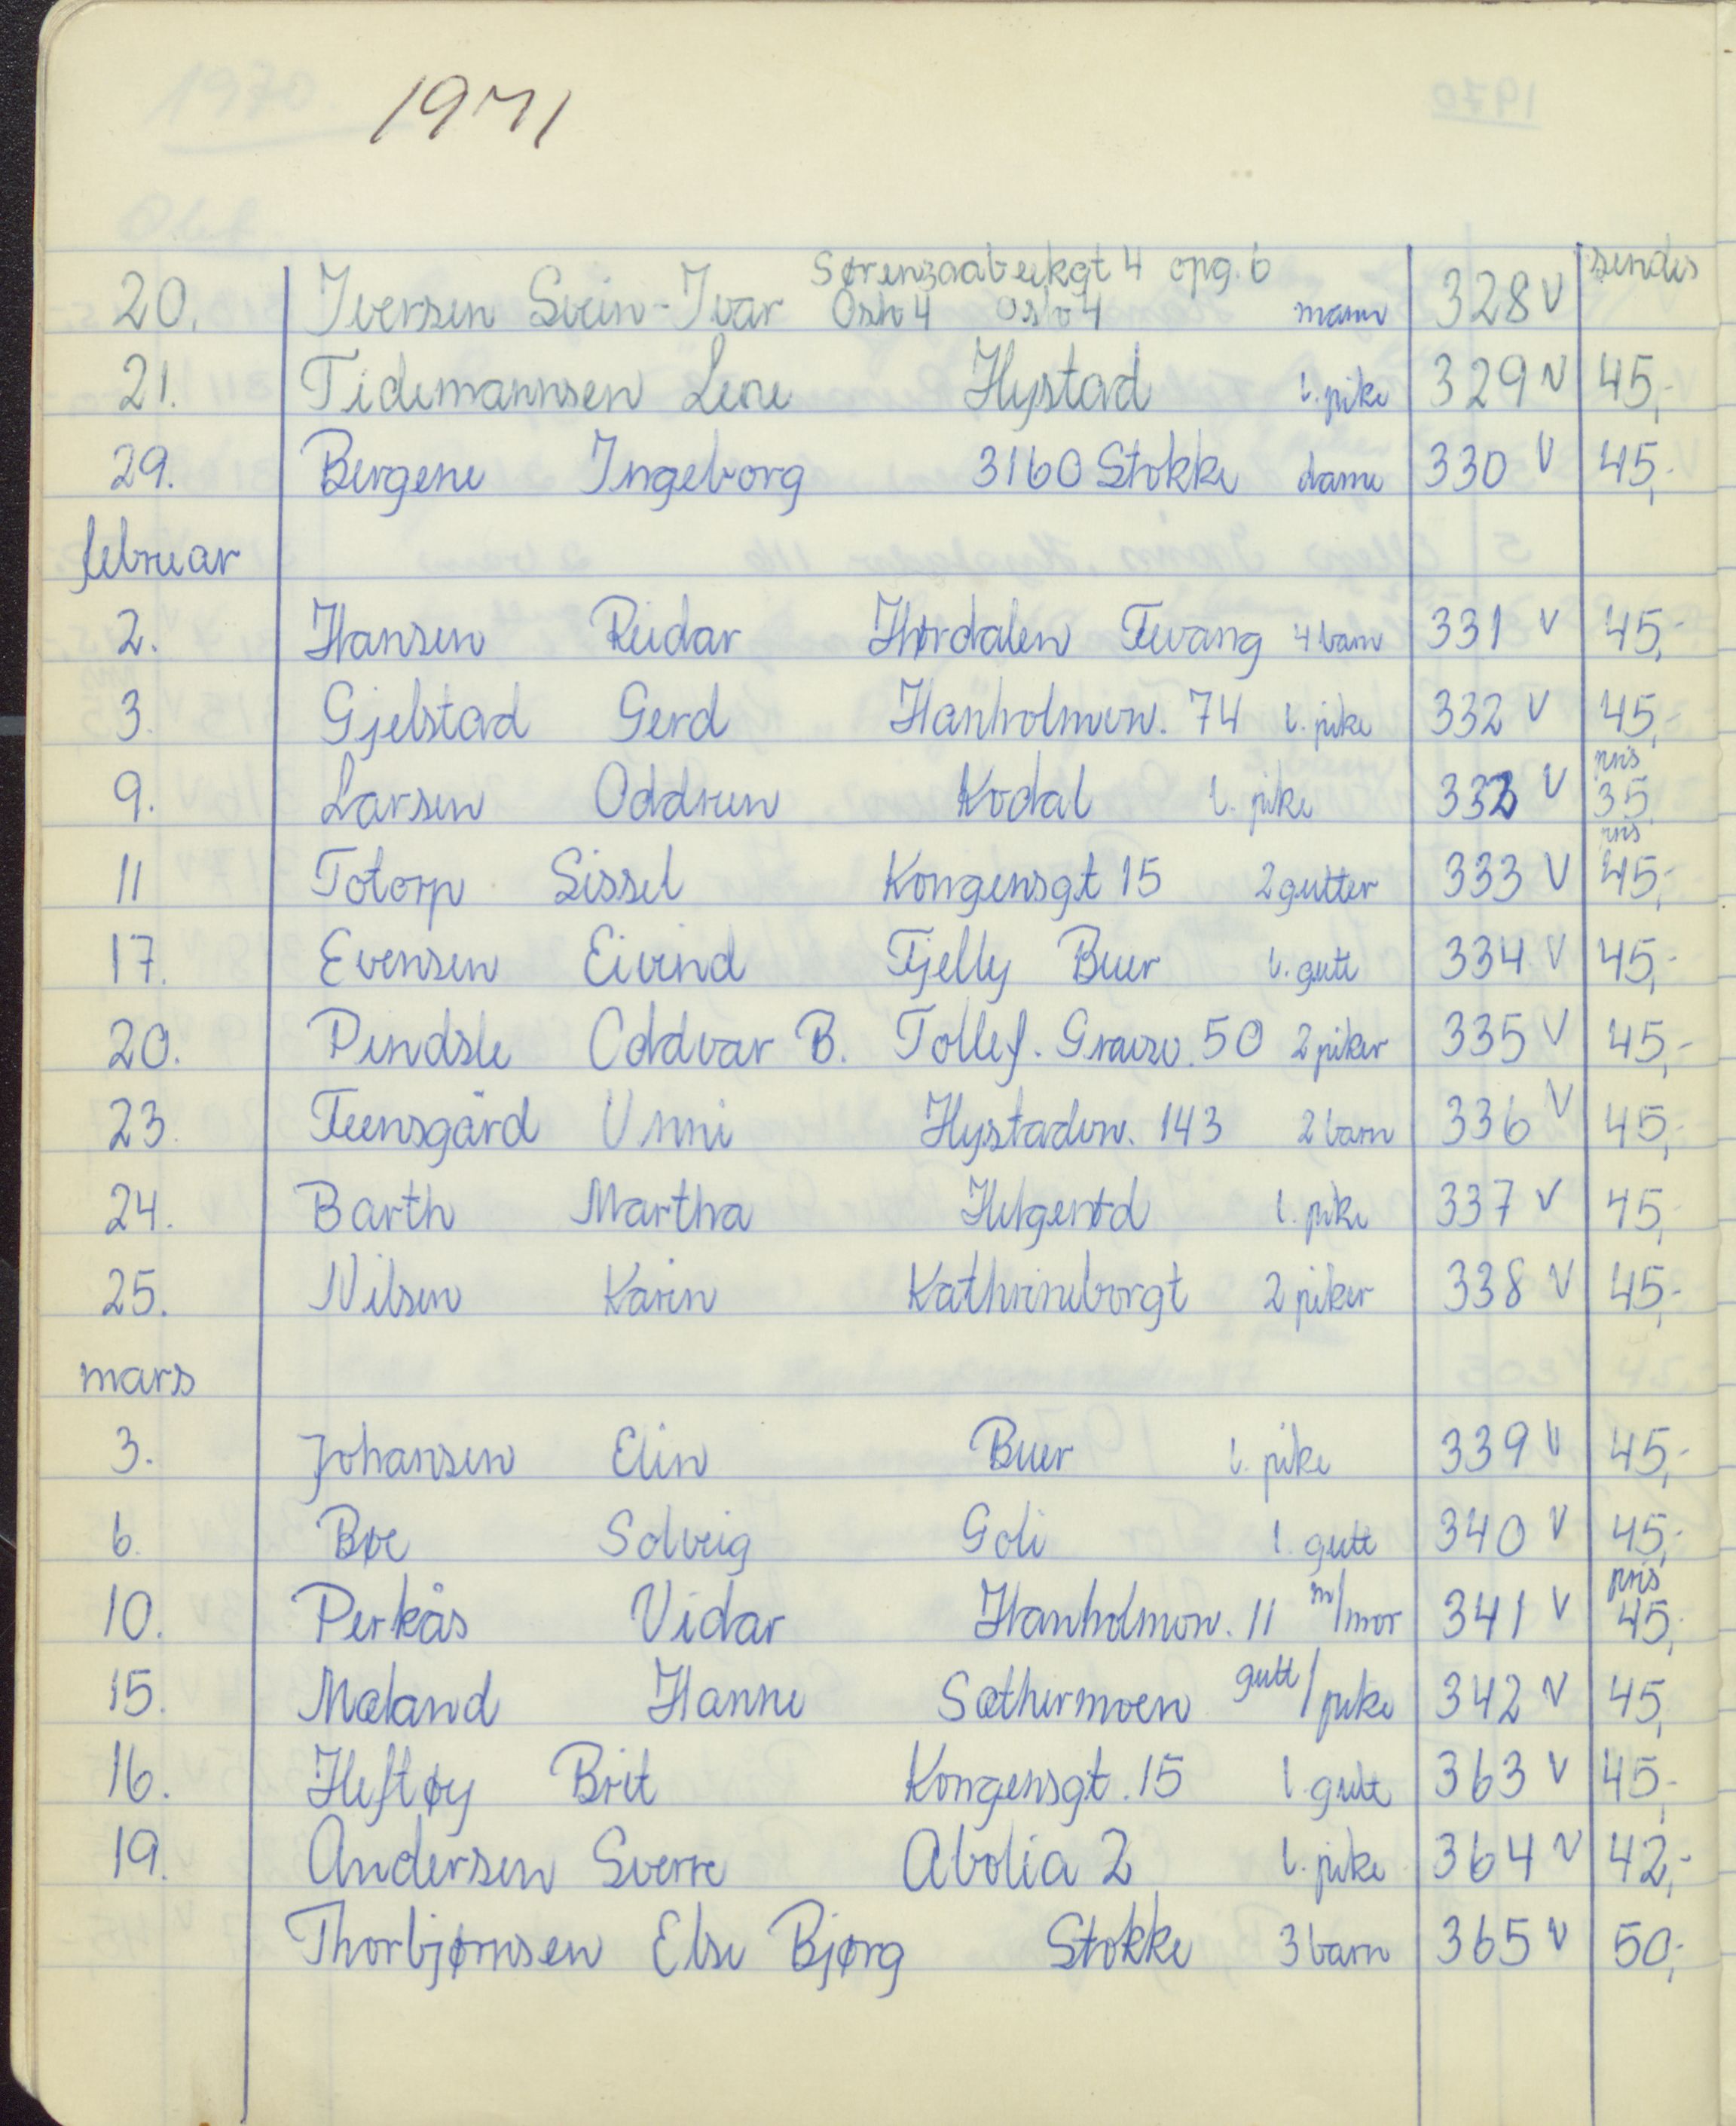 1971
Sørengaabeekgt 4 opg. 6 sendes
20. Iversen Svein-Ivar Oslo 4 Oslo 4 mann 328 V
21. Tidemannsen Lene Hystad 1. pike 329 V 45,-
29. Bergene Ingeborg 3160 Stokke dame 330 V 45,-
februar
2. Hansen Reidar Hørdalen Tevang 4 barn 331 V 45,-
3. Gjelstad Gerd Hanholmvn. 74 1. pike 332 V 45,-
9. Larsen Oddrun Kodal 1. pike 333 V pris 35,
11 Totorp Sissel Kongensgt 15 2 gutter 333 V pris 45,-
17. Evensen Eivind Fjelly Buer 1. gutt 334 V 45,-
20. Pindsle Oddvar B. Tollef. Gravsv. 50 2 piker 335 V 45,-
23. Feensgård Unni Hystadvn. 143 2 barn 336 V 45,-
24. Barth Martha Helgerød 1. pike 337 V 45,-
25. Nilsen Karin Kathrineborgt 2 piker 338 V 45,-
mars
3. Johansen Elin Buer 1. pike 339 V 45,-
6. Bøe Solveig Goli 1. gutt 340 V 45,-
10. Perkås Vidar Hanholmvn. 11 m/mor 341 V pris 45,-
15. Mæland Hanne Sæthermoen gutt/pike 342 V 45,
16. Heftøy Brit Kongensgt. 15 1. gutt 363 V 45,-
19. Andersen Sverre Abolia 2 1. pike 364 V 42,-
Thorbjørnsen Else Bjørg Stokke 3 barn 365 V 50,-